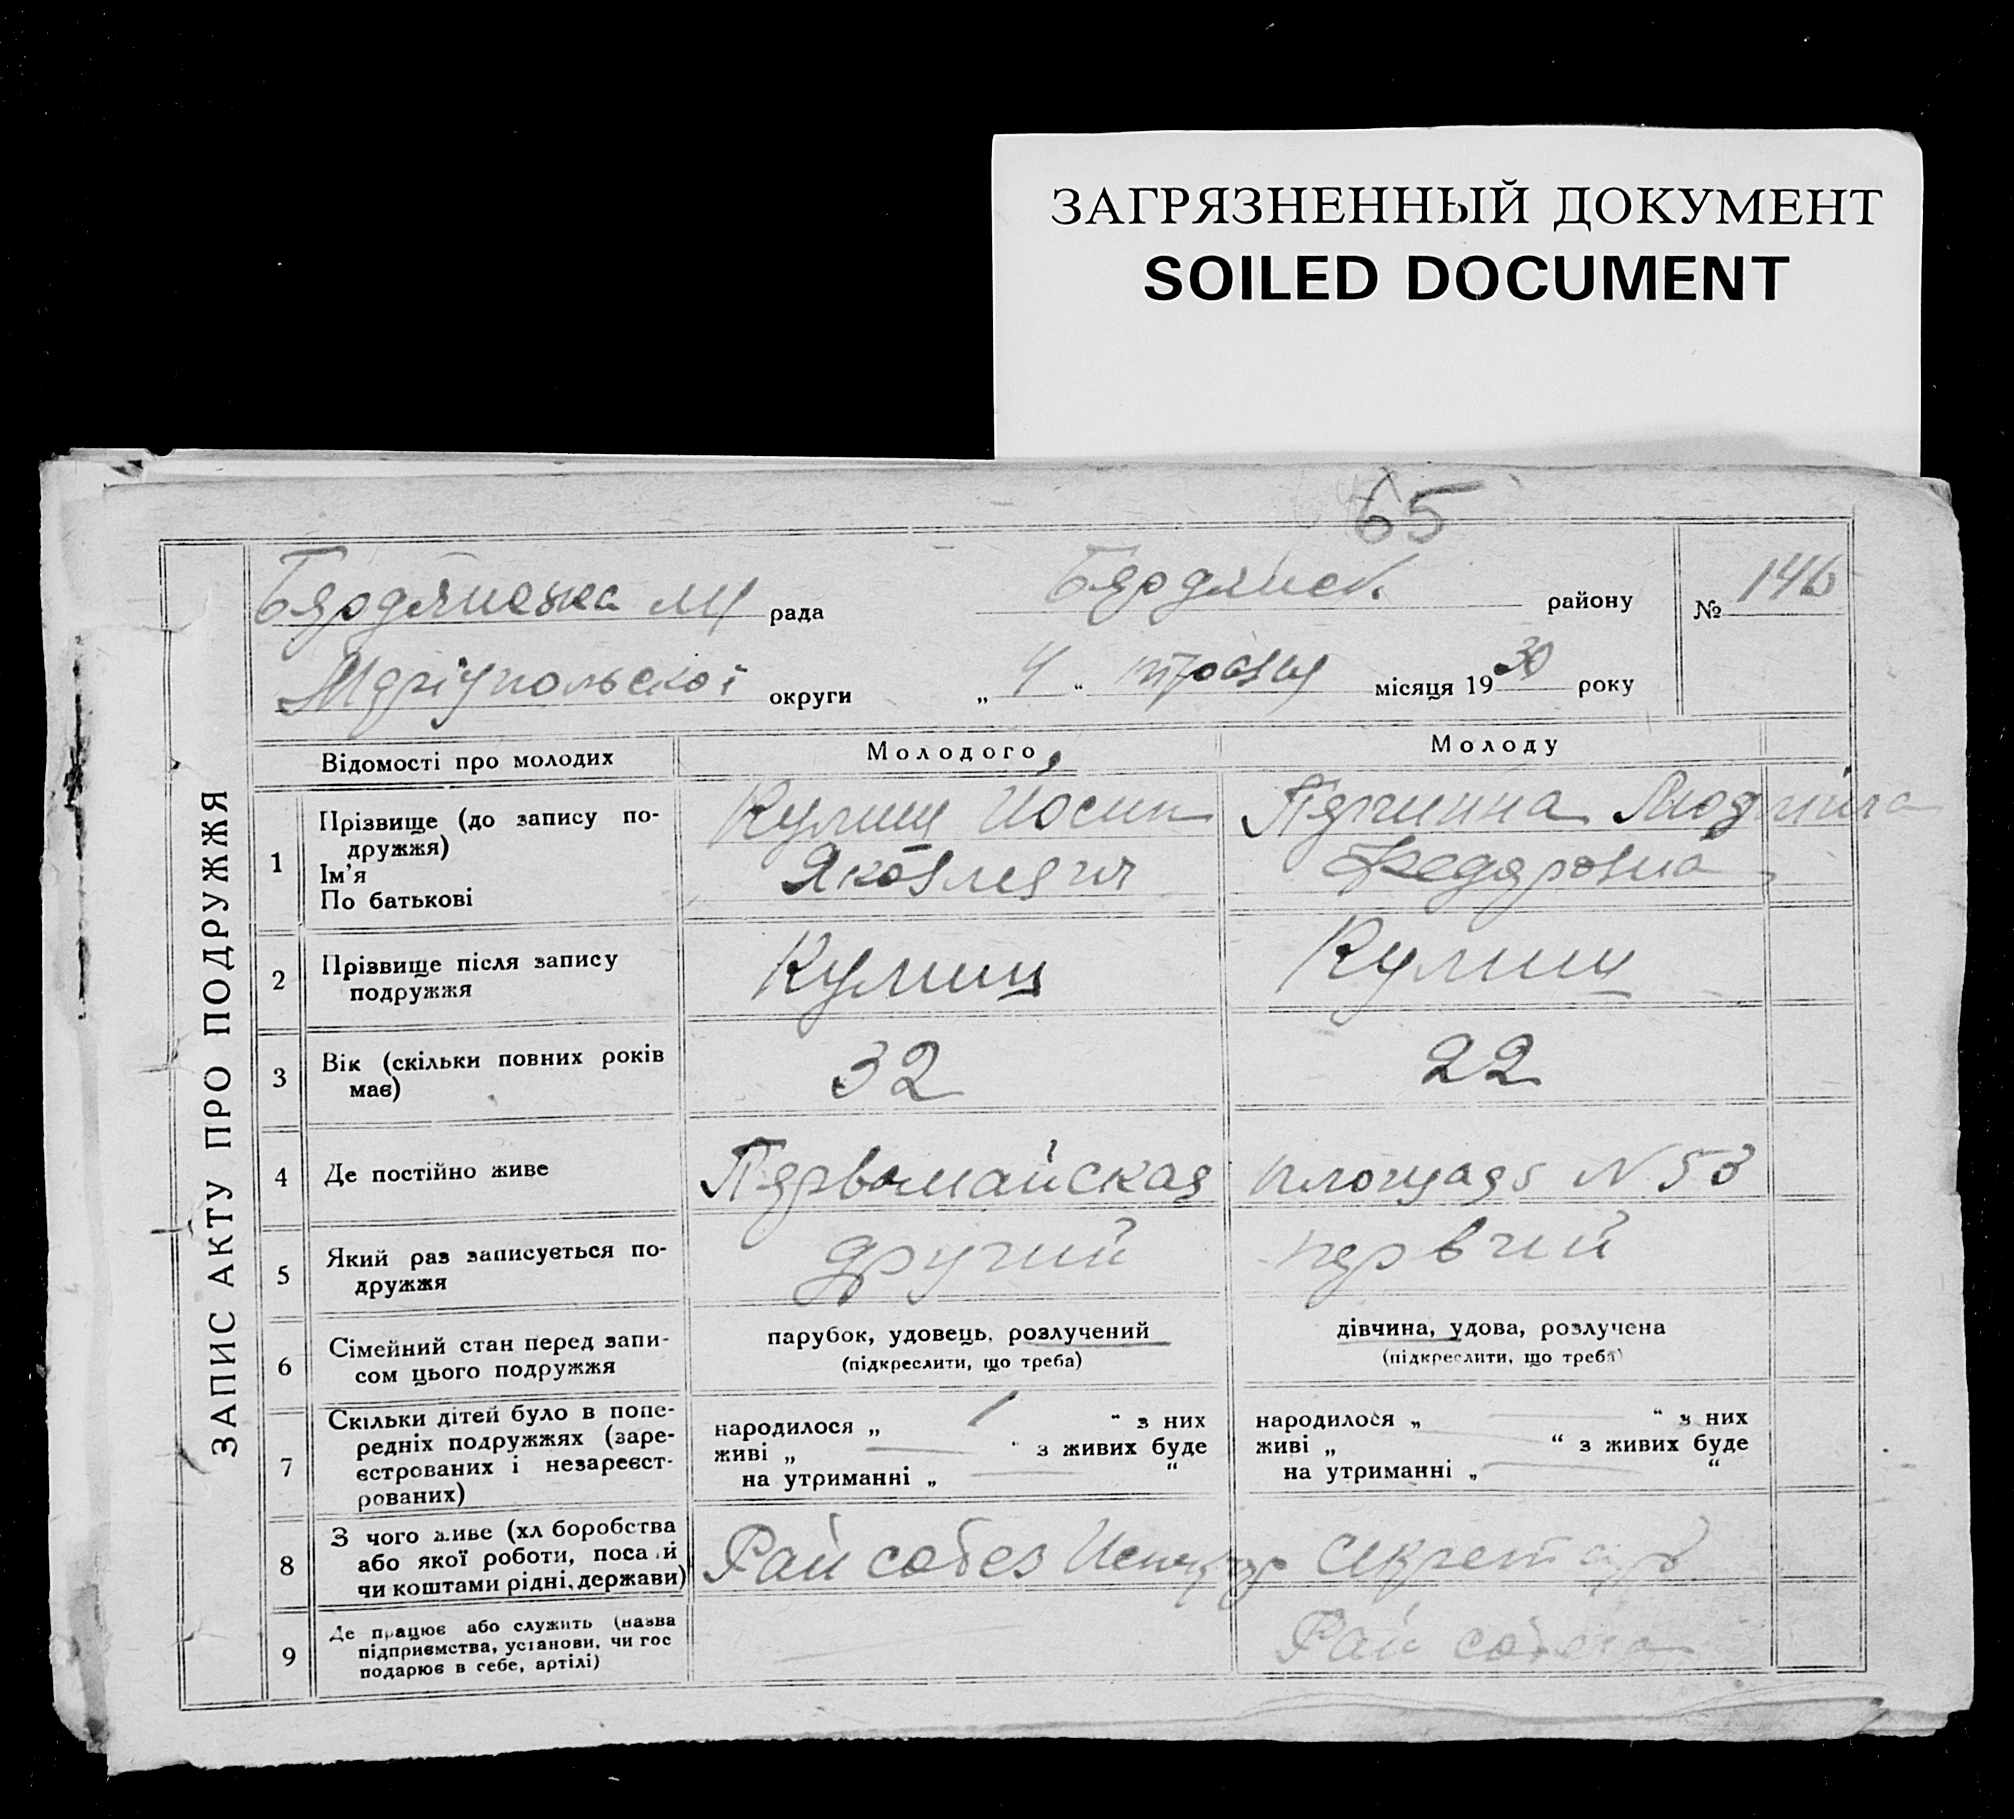 ЗАГРЯЗНЕННЫЙ ДОКУМЕНТ
SOILED DOCUMENT
65
Бердянська м рада Бердянск. району № 146
Маріупольської округи „ 4 “ травня місяця 1930 року
ЗАПИС АКТУ ПРО ПОДРУЖЖЯ
Відомості про молодих Молодого Молоду
1 Прізвище (до запису по-
дружжя)
Ім'я
По батькові
Кулиш Йосип
Яковлевич
Людмила
Федоровна
2 Прізвище після запису
подружжя
Кулиш Кулиш
3 Вік (скільки повних років
має)
32 22
4 Де постійно живе Первомайская площадь N 53
5 Який раз записується по-
дружжя
другий первий
6 Сімейний стан перед запи-
сом цього подружжя
парубок, удовець, розлучений
(підкреслити, що треба)
дівчина, удова, розлучена
(підкреслити, що треба)
7 Скільки дітей було в попе-
редніх подружжях (заре-
єстрованих і незареєст-
рованих)
народилося „ 1 “ з них
живі „ — “ з живих буде
на утриманні „ — “
народилося „ — “ з них
живі „ — “ з живих буде
на утриманні „ — “
8 З чого живе (хл боробства
або якої роботи, поса й
чи коштами рідні, держави)
Райсобез Секретарь
9 Де працює або служить (назва
підприємства, установи, чи гос
подарює в себе, артілі)
—
Рай собеса